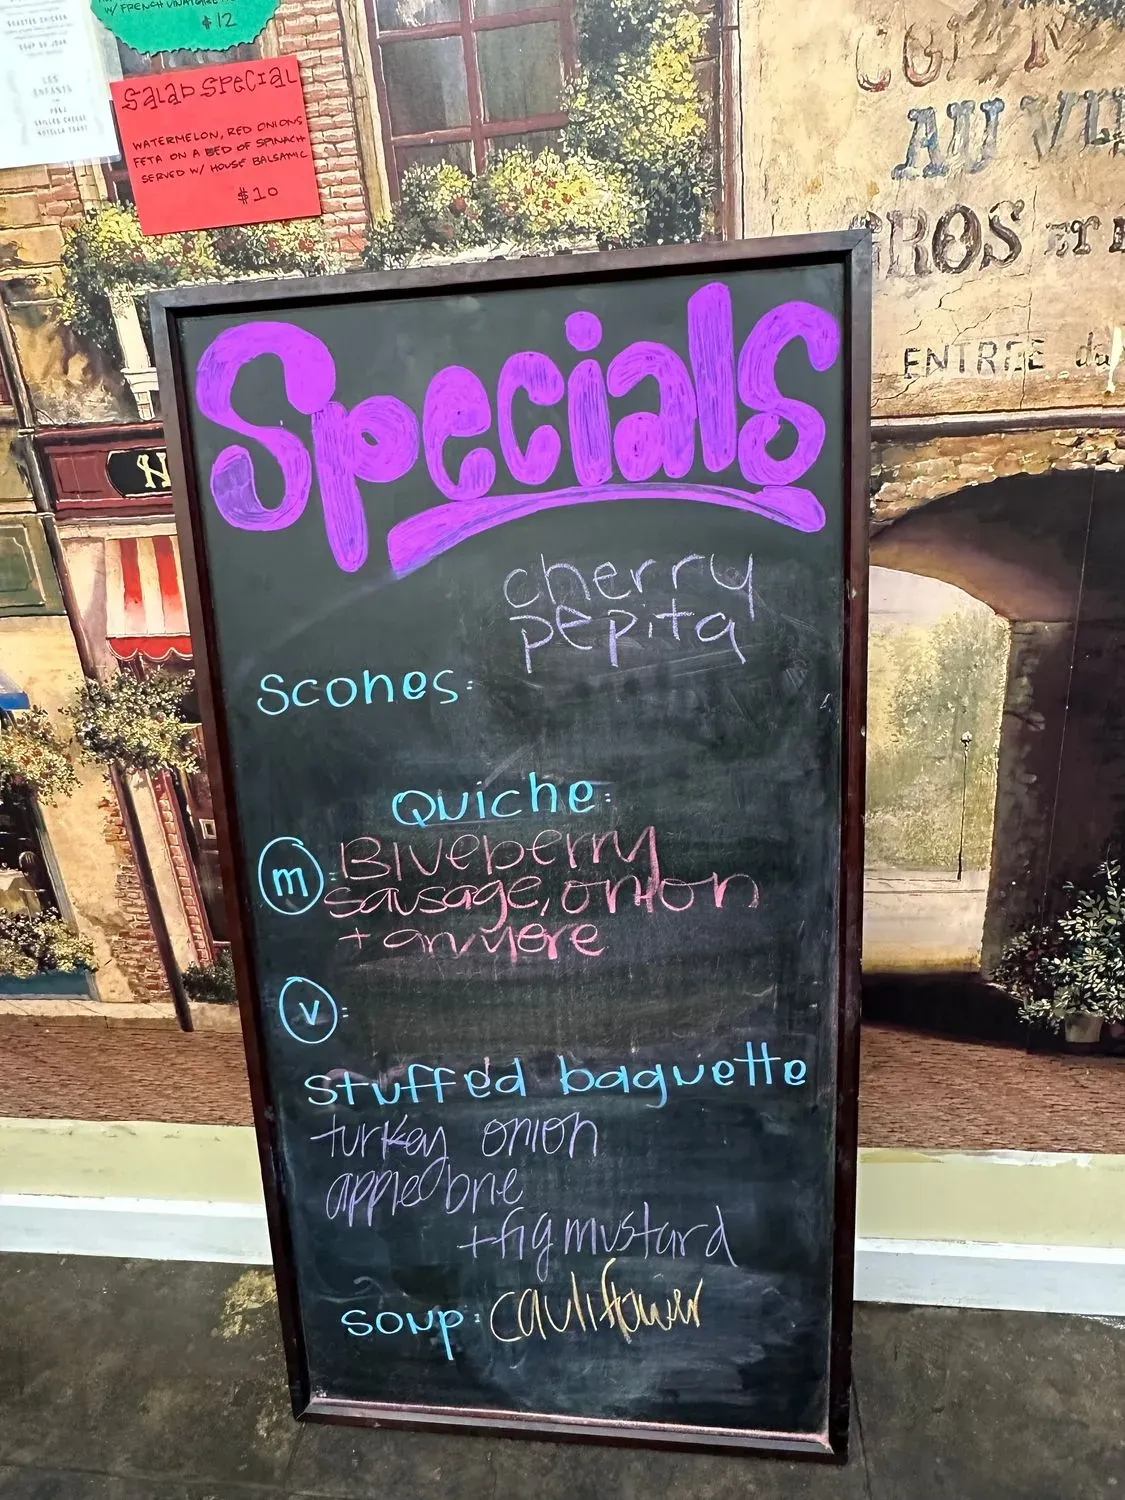 W/ FRENCH VINAIGRETTE
$12
ROASTED CHICKEN
SOUP DU JOUR
LES
ENFANTS
PB&J
GRILLED CHEESE
NUTELLA TOAST
SALAD SPECIAL
WATERMELON, RED ONIONS
FETA ON A BED OF SPINACH
SERVED W/ HOUSE BALSAMIC
$10
AU VI
GROS ET
ENTRÉE du
N
Specials
cherry
pepita
Scones:
Quiche:
m : Blueberry
sausage, onion
+ gruyere
v :
stuffed baguette
turkey onion
apple brie
+ fig mustard
soup: cauliflower